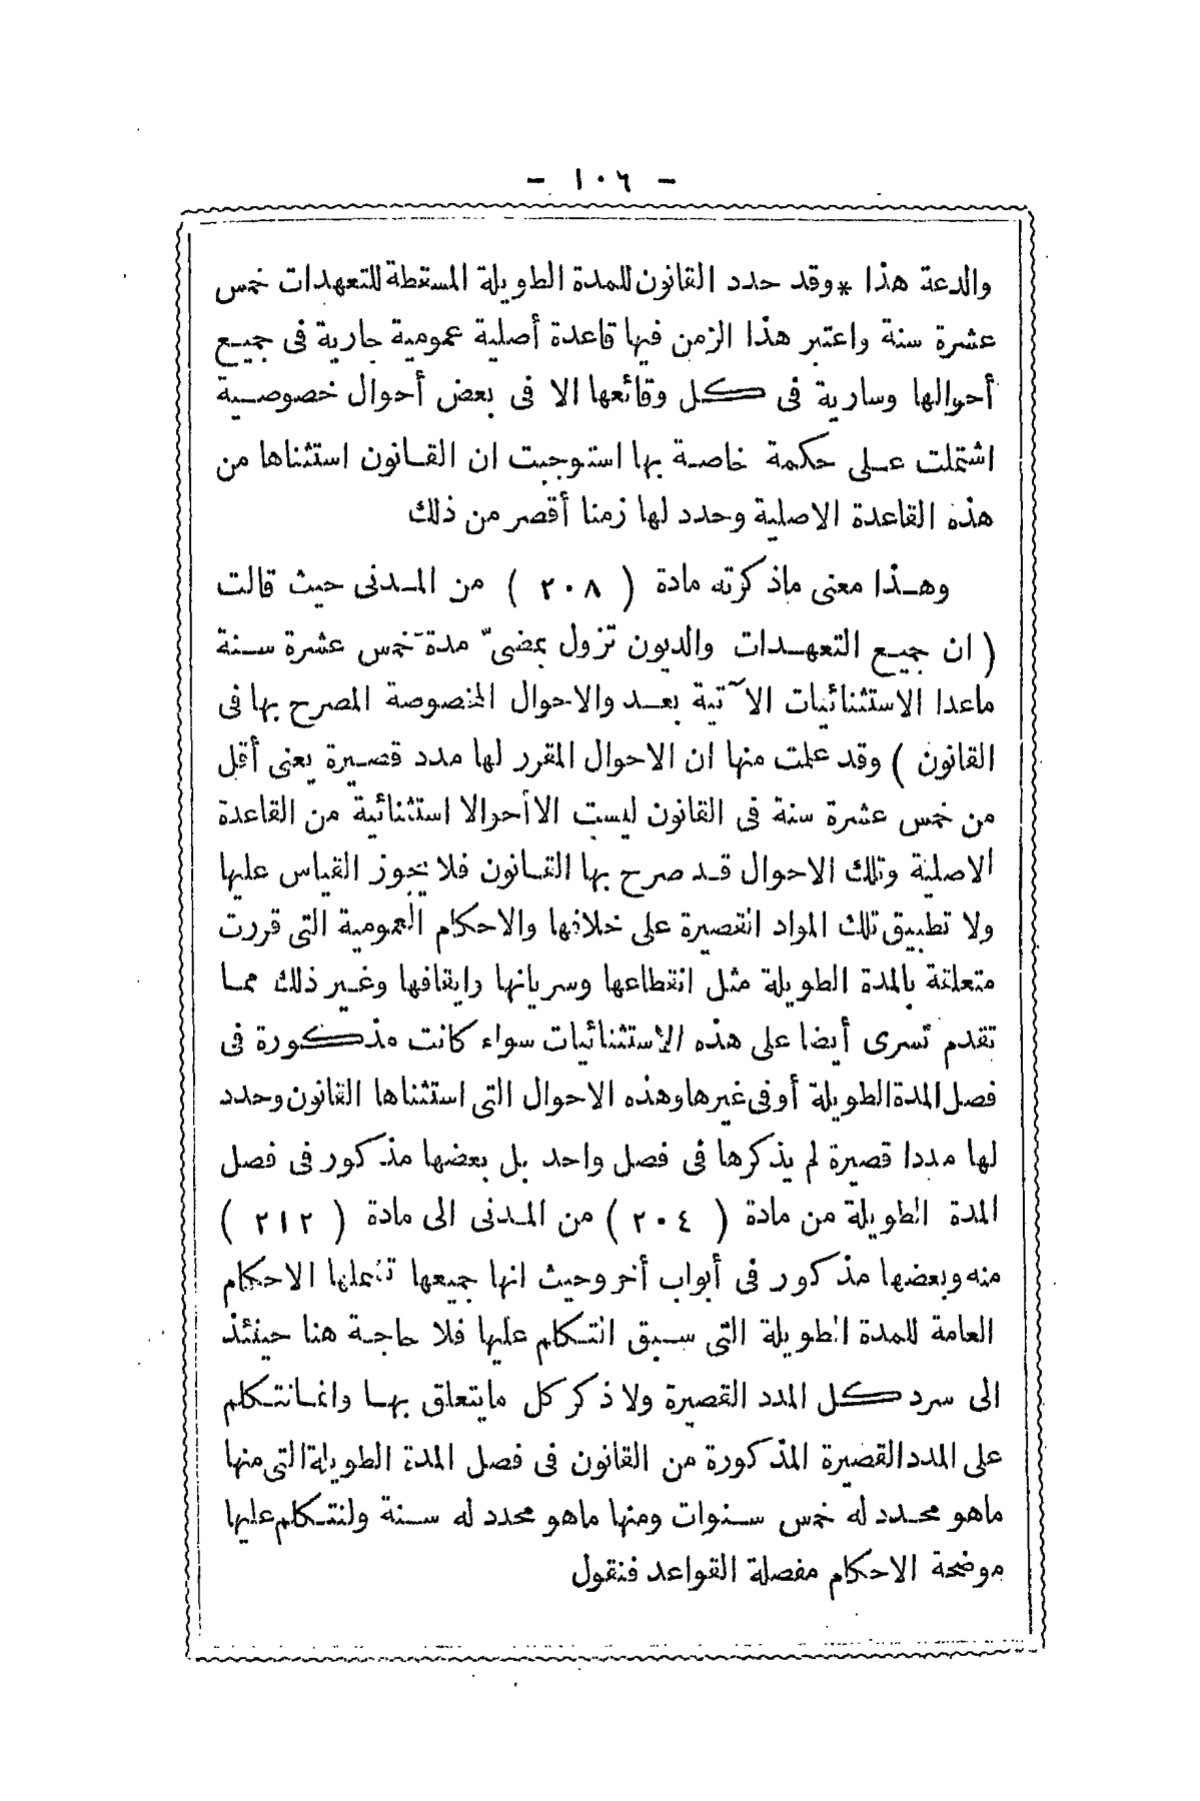 - ١٠٦ -
والدعة هذا * وقد حدد القانون للمدة الطويلة المسقطة للتعهدات خمس
عشرة سنة واعتبر هذا الزمن فيها قاعدة أصلية عمومية جارية فى جميع
أحوالها وسارية فى كل وقائعها الا فى بعض أحوال خصوصية
اشتملت على حكمة خاصة بها استوجبت ان القانون استثناها من
هذه القاعدة الاصلية وحدد لها زمنا أقصر من ذلك
وهذا معنى ماذكرته مادة ( ٢٠٨ ) من المدنى حيث قالت
( ان جميع التعهدات والديون تزول بمضىّ مدة خمس عشرة سنة
ماعدا الاستثنائيات الآتية بعد والاحوال المخصوصة المصرح بها فى
القانون ) وقد علمت منها ان الاحوال المقرر لها مدد قصيرة يعنى أقل
من خمس عشرة سنة فى القانون ليست الا أحوالا استثنائية من القاعدة
الاصلية وتلك الاحوال قد صرح بها القانون فلا يجوز القياس عليها
ولا تطبيق تلك المواد القصيرة على خلافها والاحكام العمومية التى قررت
متعلقة بالمدة الطويلة مثل انقطاعها وسريانها وايقافها وغير ذلك مما
تقدم تسرى أيضا على هذه الاستثنائيات سواء كانت مذكورة فى
فصل المدة الطويلة أو فى غيرها وهذه الاحوال التى استثناها القانون وحدد
لها مددا قصيرة لم يذكرها فى فصل واحد بل بعضها مذكور فى فصل
المدة الطويلة من مادة ( ٢٠٤ ) من المدنى الى مادة ( ٢١٢ )
منه وبعضها مذكور فى أبواب أخر وحيث انها جميعها تشملها الاحكام
العامة للمدة الطويلة التى سبق التكلم عليها فلا حاجة هنا حينئذ
الى سرد كل المدد القصيرة ولا ذكر كل مايتعلق بها وانما نتكلم
على المدد القصيرة المذكورة من القانون فى فصل المدة الطويلة التى منها
ماهو محدد له خمس سنوات ومنها ماهو محدد له سنة ولنتكلم عليها
موضحة الاحكام مفصلة القواعد فنقول